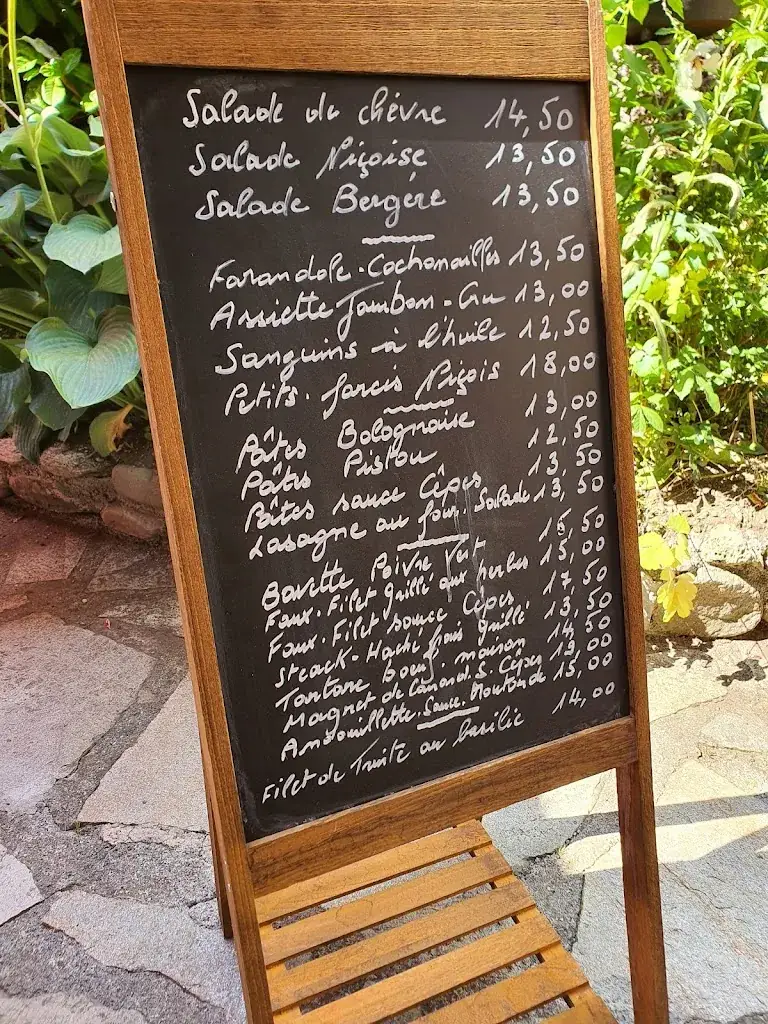 Salade de chèvre 14,50
Salade Niçoise 13,50
Salade Bergère 13,50
Farandole. Cochonailles 13,50
Assiette Jambon-Cru 13,00
Sanguins à l'huile 12,50
Petits. farcis Niçois 18,00
Pâtes Bolognaise 13,00
Pâtes Pistou 12,50
Pâtes sauce Cêpes 13,50
Lasagne au four. Salade 13,50
Bavette Poivre Vert 15,50
Faux. Filet grillé aux herbes 15,00
Faux. Filet sauce Cêpes 17,50
Steack-Haché frais grillé 13,50
Tartare boeuf. maison 14,50
Magret de Canard. S. Cêpes 19,00
Andouillette. Sauce. Moutarde 15,00
Filet de Truite au basilic 14,00